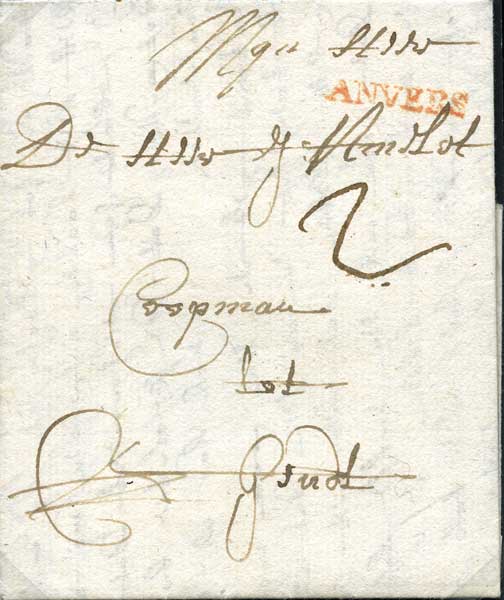 Mijn Heer
ANVERS
De Heer J: Amelot
2
Coopman
tot
Gendt